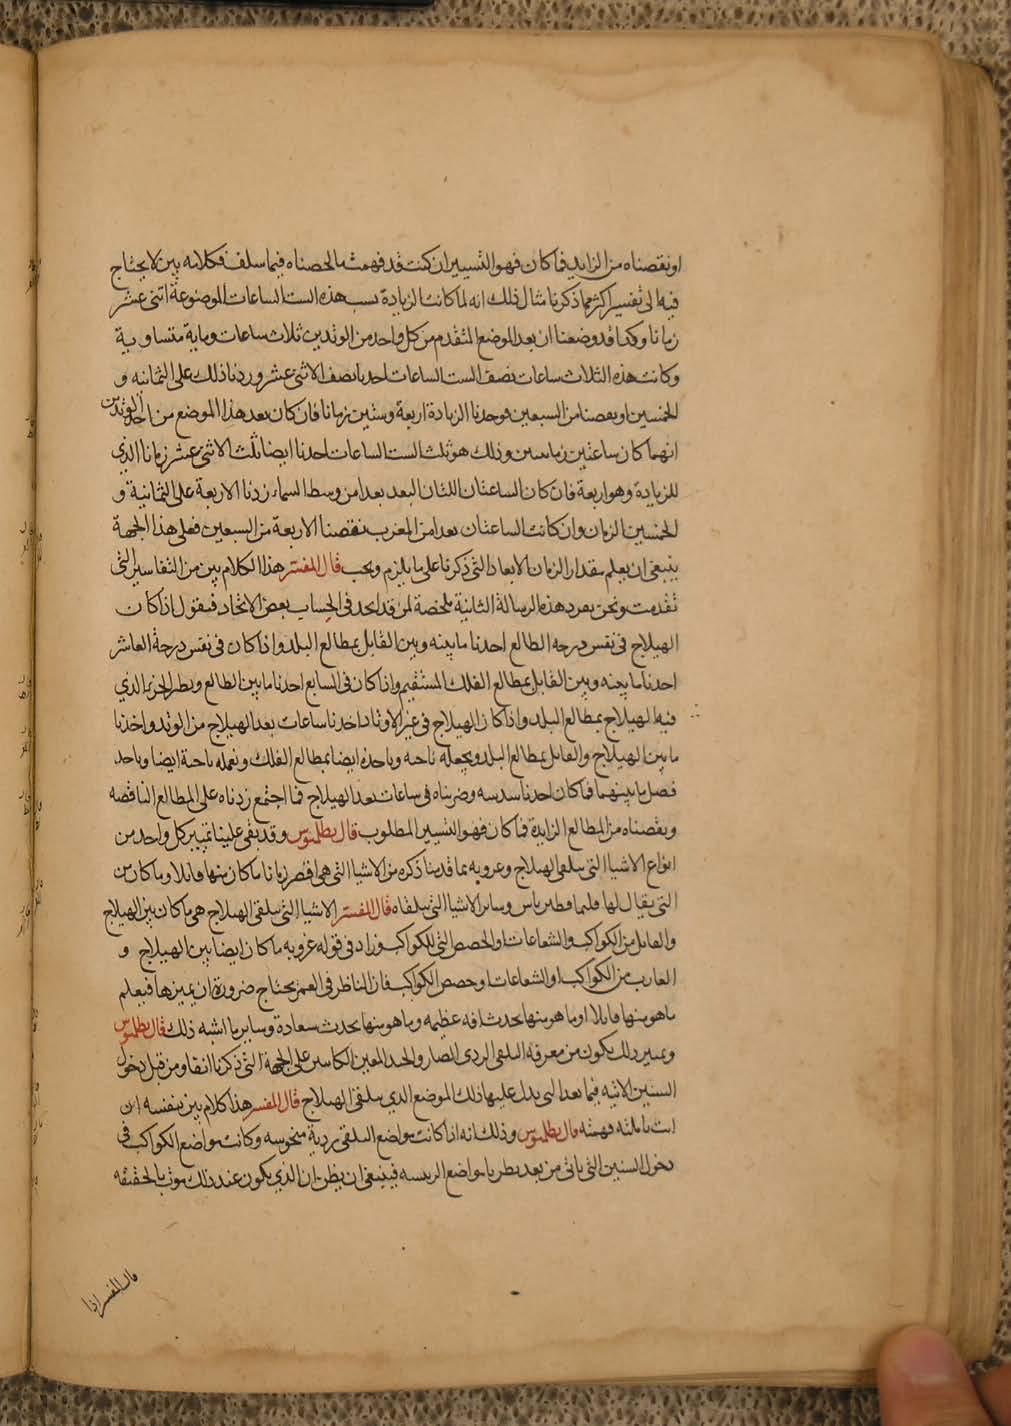 او نقصناه من الزايد فما كان فهو التسيير ان كنت قد فهمت ما لخصناه فيما سلف فكلامه بين لا يحتاج
فيه الى تفسير اكثر مما ذكرنا مثال ذلك انه لما كانت الزيادة بسبب هذه الست الساعات الموضوعة اثنى عشر
زمانا وكنا قد وضعنا ان بعد الموضع المتقدم من كل واحد من الوتدين ثلاث ساعات زمانية متساوية
وكانت هذه الثلاث ساعات نصف الست الساعات اخذنا نصف الاثنى عشر وزدنا ذلك على الثمانية و
الخمسين او نقصنا من السبعين فوجدنا الزيادة اربعة وستين زمانا فان كان بعد هذا الموضع من احد الوتدين
ايهما كان ساعتين زمانيتين وذلك هو ثلث الست الساعات اخذنا ايضا ثلث الاثنى عشر زمانا الذي
للزيادة وهو اربعة فان كان الساعتان اللتان البعد بعدا من وسط السماء زدنا الاربعة على الثمانية و
الخمسين الزمان وان كانت الساعتان بعدا من المغرب نقصنا الاربعة من السبعين فعلى هذا الجهة
ينبغي ان يعلم مقدار الزمان الابعاد التي ذكرنا على ما يلزم ويجب قال المفسر هذا الكلام بين من التفاسير التي
تقدمت ونحن نفرد هذه الرسالة الثانية ملخصة لمن قد اتحد في الحساب بعض الاتحاد فنقول اذا كان
الهيلاج في نفس درجة الطالع اخذنا ما بينه وبين القابل بمطالع البلد واذا كان في نفس درجة العاشر
اخذنا ما بينه وبين القابل بمطالع الفلك المستقيم واذا كان في السابع اخذنا ما بين الطالع ونظير الجزء الذي
فيه الهيلاج بمطالع البلد واذا كان الهيلاج في غير الاوتاد اخذنا ساعات بعد الهيلاج من الوتد واخذنا
ما بين الهيلاج والقابل بمطالع البلد ونجعله ناحية وناخذه ايضا بمطالع الفلك ونعمله ناحية ايضا وناخذ
فضل ما بينهما فما كان اخذنا سدسه وضربناه في ساعات بعد الهيلاج فما اجتمع زدناه على المطالع الناقصة
ونقصناه من المطالع الزايدة فما كان فهو التسيير المطلوب قال بطلميوس وقد بقي علينا تمييز كل واحد من
انواع الاشيا التي تلقى الهيلاج وغروبه بما قدمنا ذكره من الاشيا التي هي اقصر زمانا ما كان منها قابلا وما كان من
التي يقال لها قليماقطيرياس وساير الاشيا التي تتلقاه قال المفسر الاشيا التي تتلقى الهيلاج هي ما كان بين الهيلاج
والقابل من الكواكب والشعاعات او الحصص التي للكواكب وزاد في قوله غروبه ما كان ايضا بين الهيلاج و
الغارب من الكواكب او الشعاعات او حصص الكواكب فان الناظر في العمر يحتاج ضرورة ان يميزها فيعلم
ما هو منها قابلا او ما هو منها يحدث افة عظيمة وما هو منها يحدث سعادة وساير ما اشبه ذلك قال بطلميوس
وتمييز ذلك يكون من معرفة التلقى الردى الضار والجيد المعين الكاينين على الجهة التي ذكرنا انفا ومن قبل دخول
السنين الاتية فيما بعد التي يدل عليها ذلك الموضع الذي يتلقى الهيلاج قال المفسر هذا كلام بين بنفسه ان
انت تاملته فهمته قال بطلميوس وذلك انه اذا كانت مواضع التلقى ردية منحوسة وكانت مواضع الكواكب في
دخول السنين التي ياتي من بعد ينظر با مواضع الرئيسة فينبغي ان يظن ان الذي يكون عند ذلك موت بالحقيقة
قال المفسر اذا